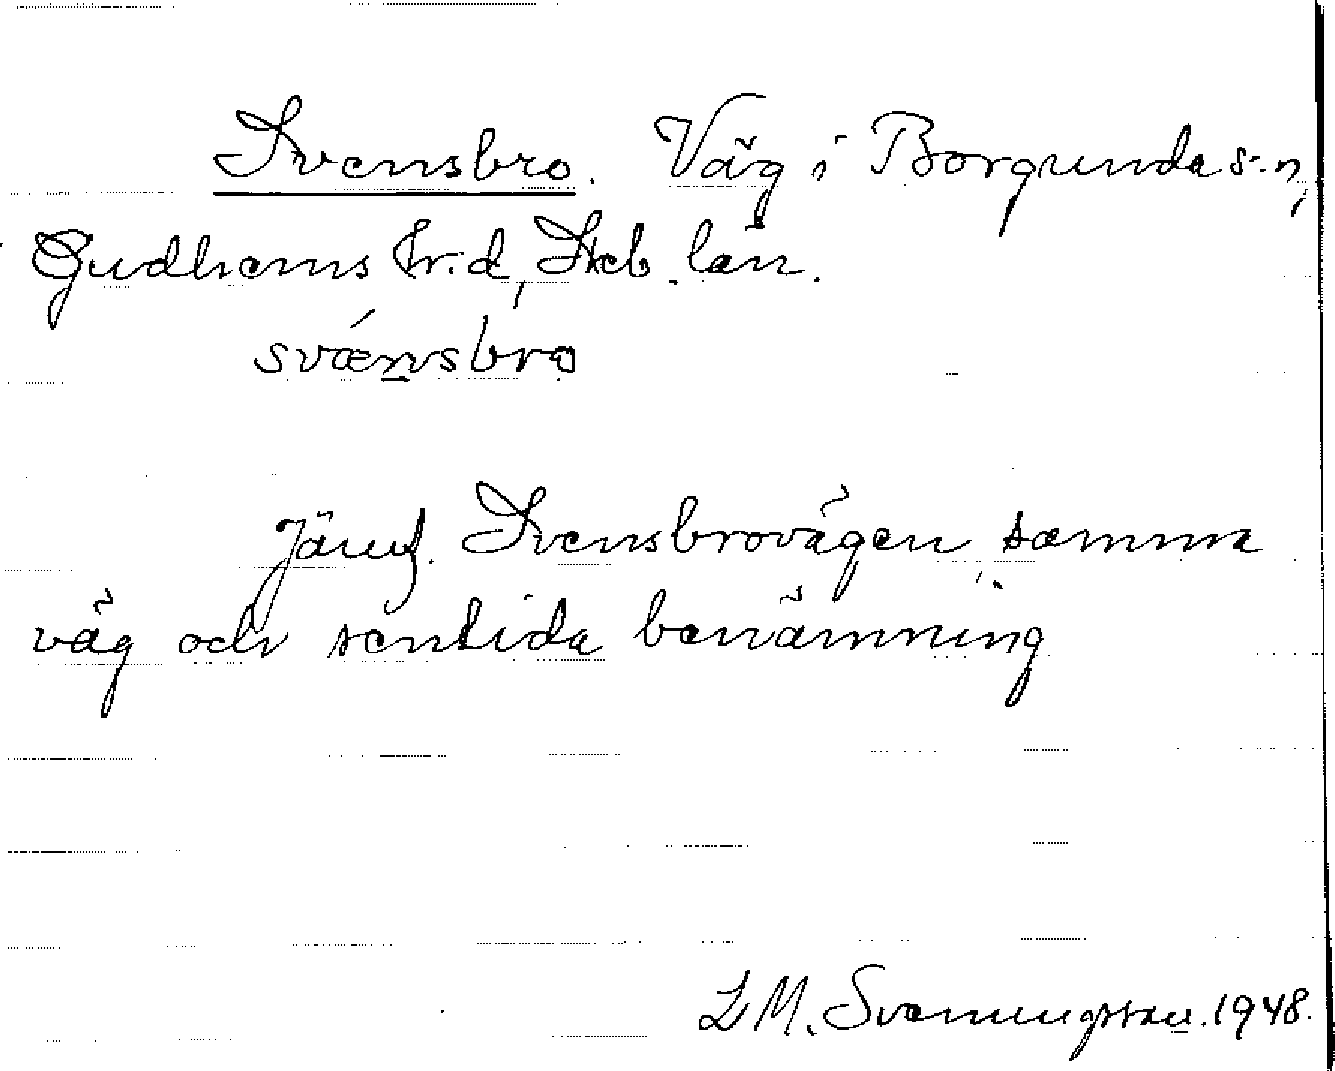 Svensbro. Väg i Borgunda s-n,
Gudhems hr.d, Skb. län.
svǽnsbro
Jämf. Svensbrovägen, samma
väg och sentida benämning
L M. Svenningsson. 1948.